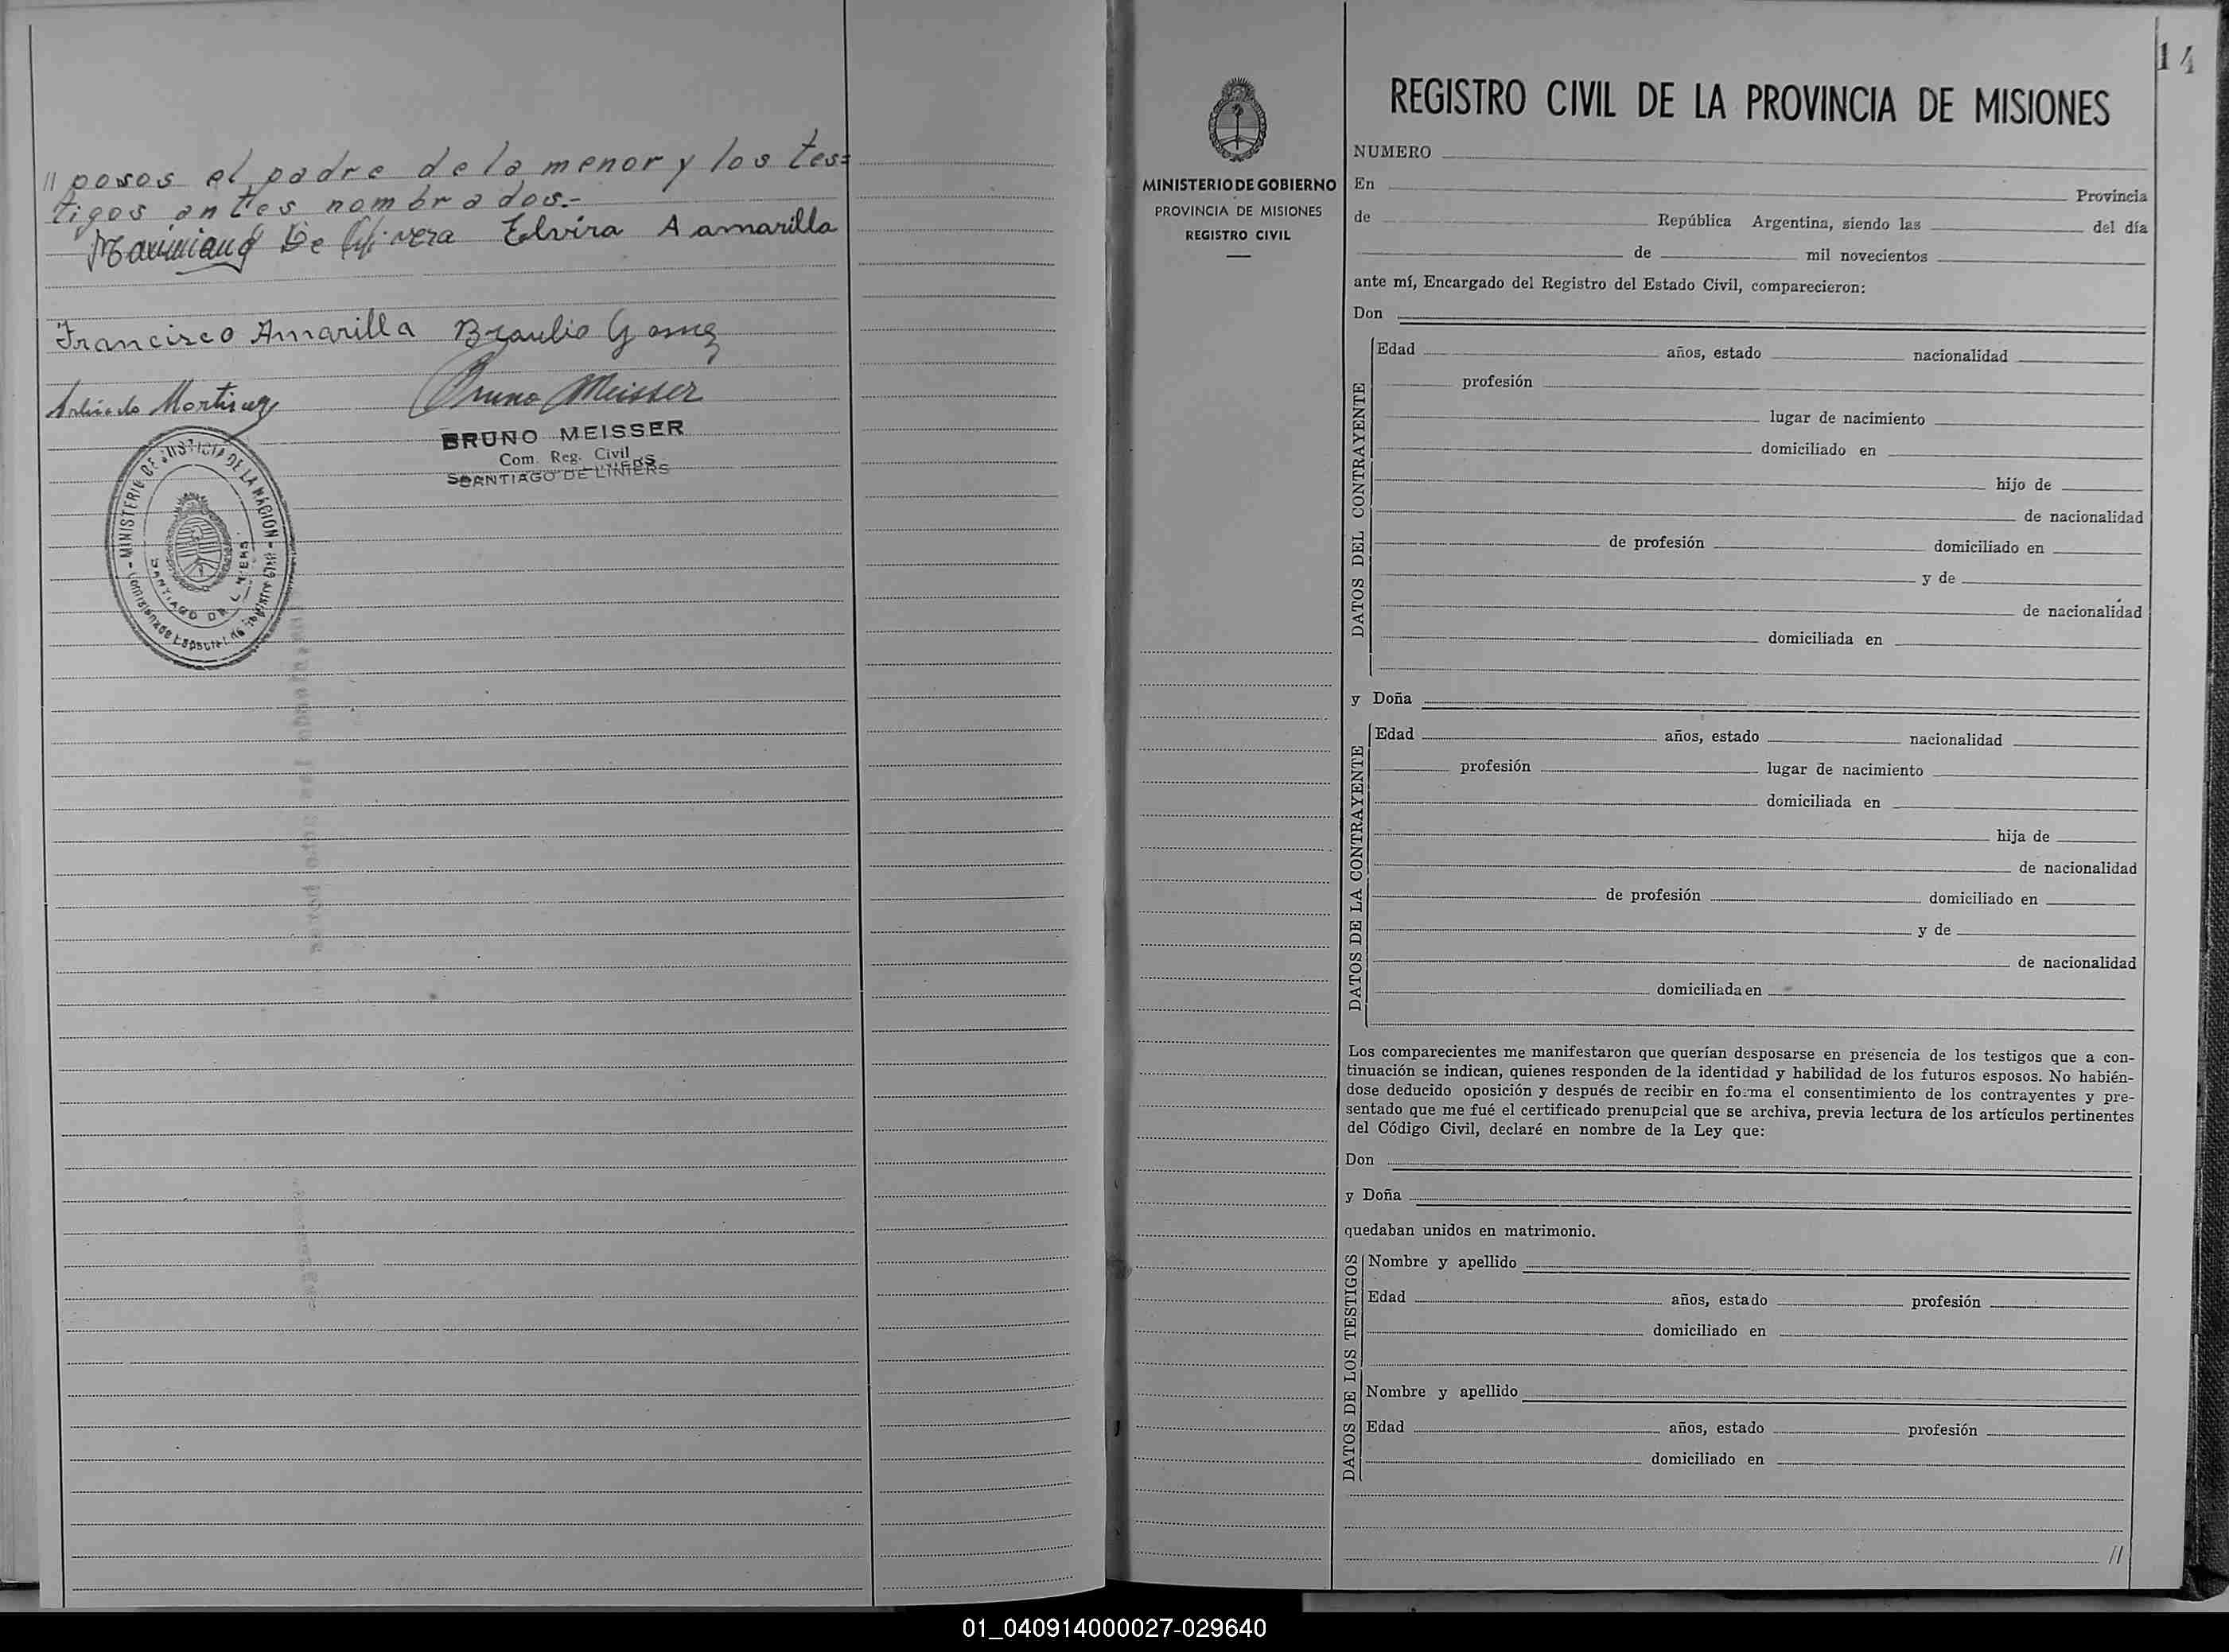 // posos el padre de la menor y los tes=
tigos antes nombrados.-
De Elvira A amarilla
Francisco Amarilla Braulio Gomez
Martinez Bruno Meisser
BRUNO MEISSER
Com. Reg. Civil
SANTIAGO DE LINIERS
MINISTERIO DE JUSTICIA DE LA NACION
SANTIAGO DE LINIERS
14
REGISTRO CIVIL DE LA PROVINCIA DE MISIONES
MINISTERIO DE GOBIERNO
PROVINCIA DE MISIONES
REGISTRO CIVIL
NUMERO
En Provincia
de República Argentina, siendo las del día
de mil novecientos
ante mí, Encargado del Registro del Estado Civil, comparecieron:
Don
DATOS DEL CONTRAYENTE
Edad años, estado nacionalidad
profesión
lugar de nacimiento
domiciliado en
hijo de
de nacionalidad
de profesión domiciliado en
y de
de nacionalidad
domiciliada en
y Doña
DATOS DE LA CONTRAYENTE
Edad años, estado nacionalidad
profesión lugar de nacimiento
domiciliada en
hija de
de nacionalidad
de profesión domiciliado en
y de
de nacionalidad
domiciliada en
Los comparecientes me manifestaron que querían desposarse en presencia de los testigos que a con-
tinuación se indican, quienes responden de la identidad y habilidad de los futuros esposos. No habién-
dose deducido oposición y después de recibir en forma el consentimiento de los contrayentes y pre-
sentado que me fué el certificado prenupcial que se archiva, previa lectura de los artículos pertinentes
del Código Civil, declaré en nombre de la Ley que:
Don
y Doña
quedaban unidos en matrimonio.
DATOS DE LOS TESTIGOS
Nombre y apellido
Edad años, estado profesión
domiciliado en
Nombre y apellido
Edad años, estado profesión
domiciliado en
//
01_040914000027-029640